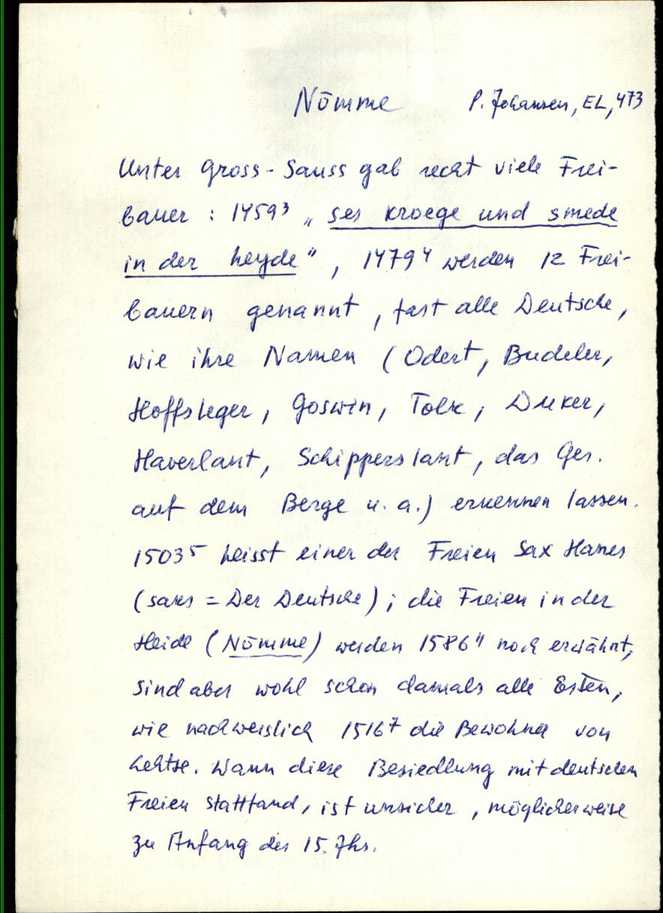 Nõmme P. Johansen, EL, 473
Unter Gross-Sauss gab recht viele Frei-
bauer : 1459³ „ses kroege und smede
in der heyde", 1479⁴ werden 12 Frei-
bauern genannt, fast alle Deutsche,
wie ihre Namen (Odert, Budeler,
Hoffsleger, Goswin, Tolk, Duker,
Haverlant, Schipperslant, das Ges.
auf dem Berge u. a.) erkennen lassen.
1503⁵ heisst einer der Freien Sax Hanes
(saxs = Der Deutsche); die Freien in der
Heide (Nõmme) werden 1586⁴ noch erwähnt,
sind aber wohl schon damals alle Esten,
wie nachweislich 1516⁷ die Bewohner von
Lehtse. Wann diese Besiedlung mit deutschen
Freien stattfand, ist unsicher, möglicherweise
zu Anfang des 15. Jhs.